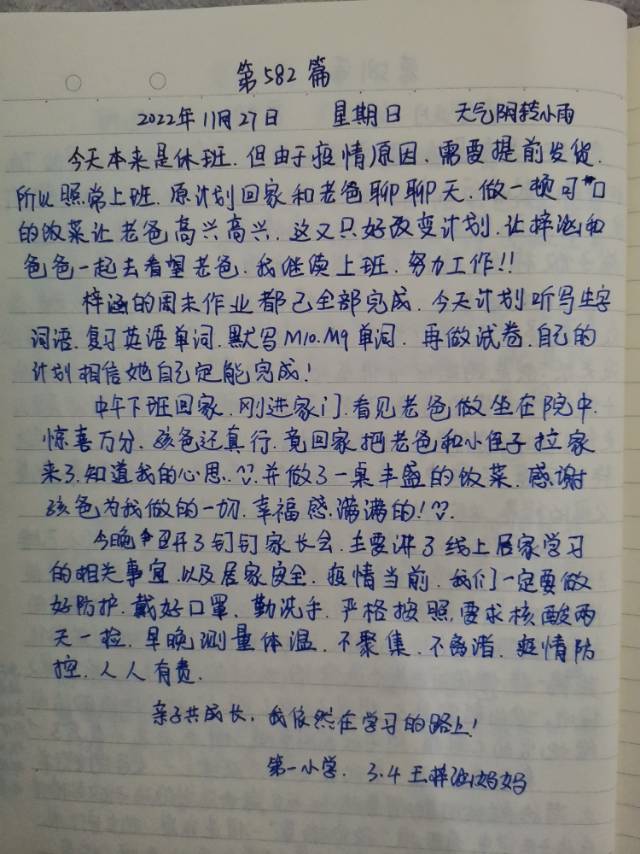 第582篇
2022年11月27日 星期日 天气阴转小雨
今天本来是休班.但由于疫情原因.需要提前发货.
所以照常上班.原计划回家和老爸聊聊天.做一顿可口
的饭菜让老爸高兴高兴.这又只好改变计划.让梓涵和
爸爸一起去看望老爸.我继续上班.努力工作!!
梓涵的周末作业都已全部完成.今天计划听写生字
词语.复习英语单词.默写M10.M9单词.再做试卷.自己的
计划相信她自己定能完成!
中午下班回家.刚进家门.看见老爸做坐在院中.
惊喜万分.孩爸还真行.竟回家把老爸和小侄子拉家
来了.知道我的心思.并做了一桌丰盛的饭菜.感谢
孩爸为我做的一切.幸福感满满的!
今晚召开了钉钉家长会.主要讲了线上居家学习
的相关事宜.以及居家安全.疫情当前.我们一定要做
好防护.戴好口罩.勤洗手.严格按照要求核酸两
天一检.早晚测量体温.不聚集.不.疫情防
控.人人有责.
亲子共成长.我依然在学习的路上!
第一小学.3.4王梓涵妈妈